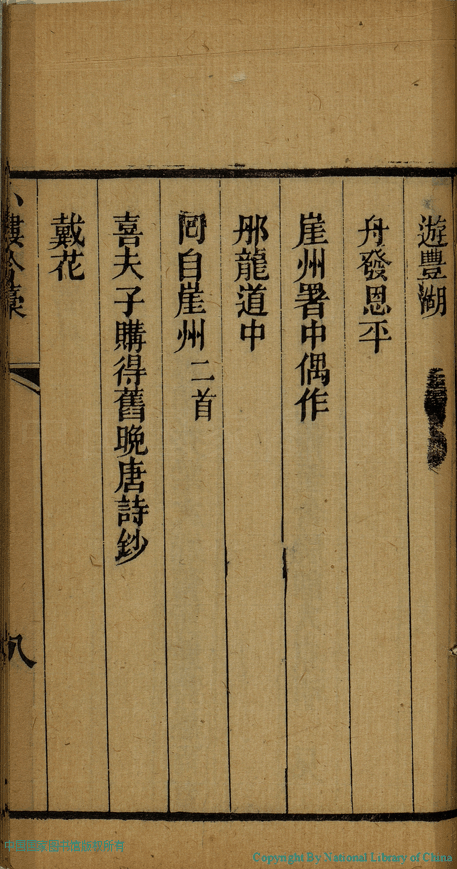 遊豐湖
舟發恩平
崖州署中偶作
那龍道中
回自崖州二首
喜夫子購得舊晚唐詩鈔
戴花
八
Copyright By National Library of China